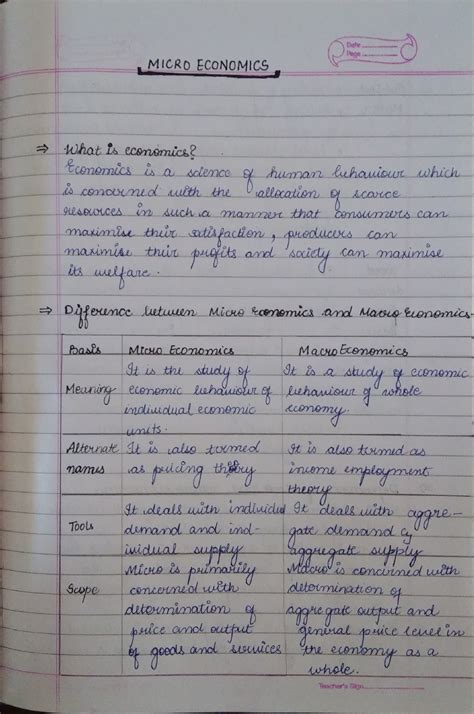 Date
Page
MICRO ECONOMICS
⇒ What is economics?
Economics is a science of human behaviour which
is concerned with the allocation of scarce
resources in such a manner that consumers can
maximise their satisfaction, producers can
maximise their profits and society can maximise
its welfare.
⇒ Difference between Micro Economics and Macro Economics-
Basis
Micro Economics
Macro Economics
Meaning
It is the study of
economic behaviour of
individual economic
units.
It is a study of economic
behaviour of whole
economy.
Alternate
names
It is also termed
as pricing theory
It is also termed as
income employment
theory
Tools
It deals with individual
demand and ind-
ividual supply
It deals with aggre-
gate demand &
aggregate supply
Scope
Micro is primarily
concerned with
determination of
price and output
of goods and services
Macro is concirned with
determination of
aggregate output and
general price level in
the economy as a
whole.
Teacher's Sign